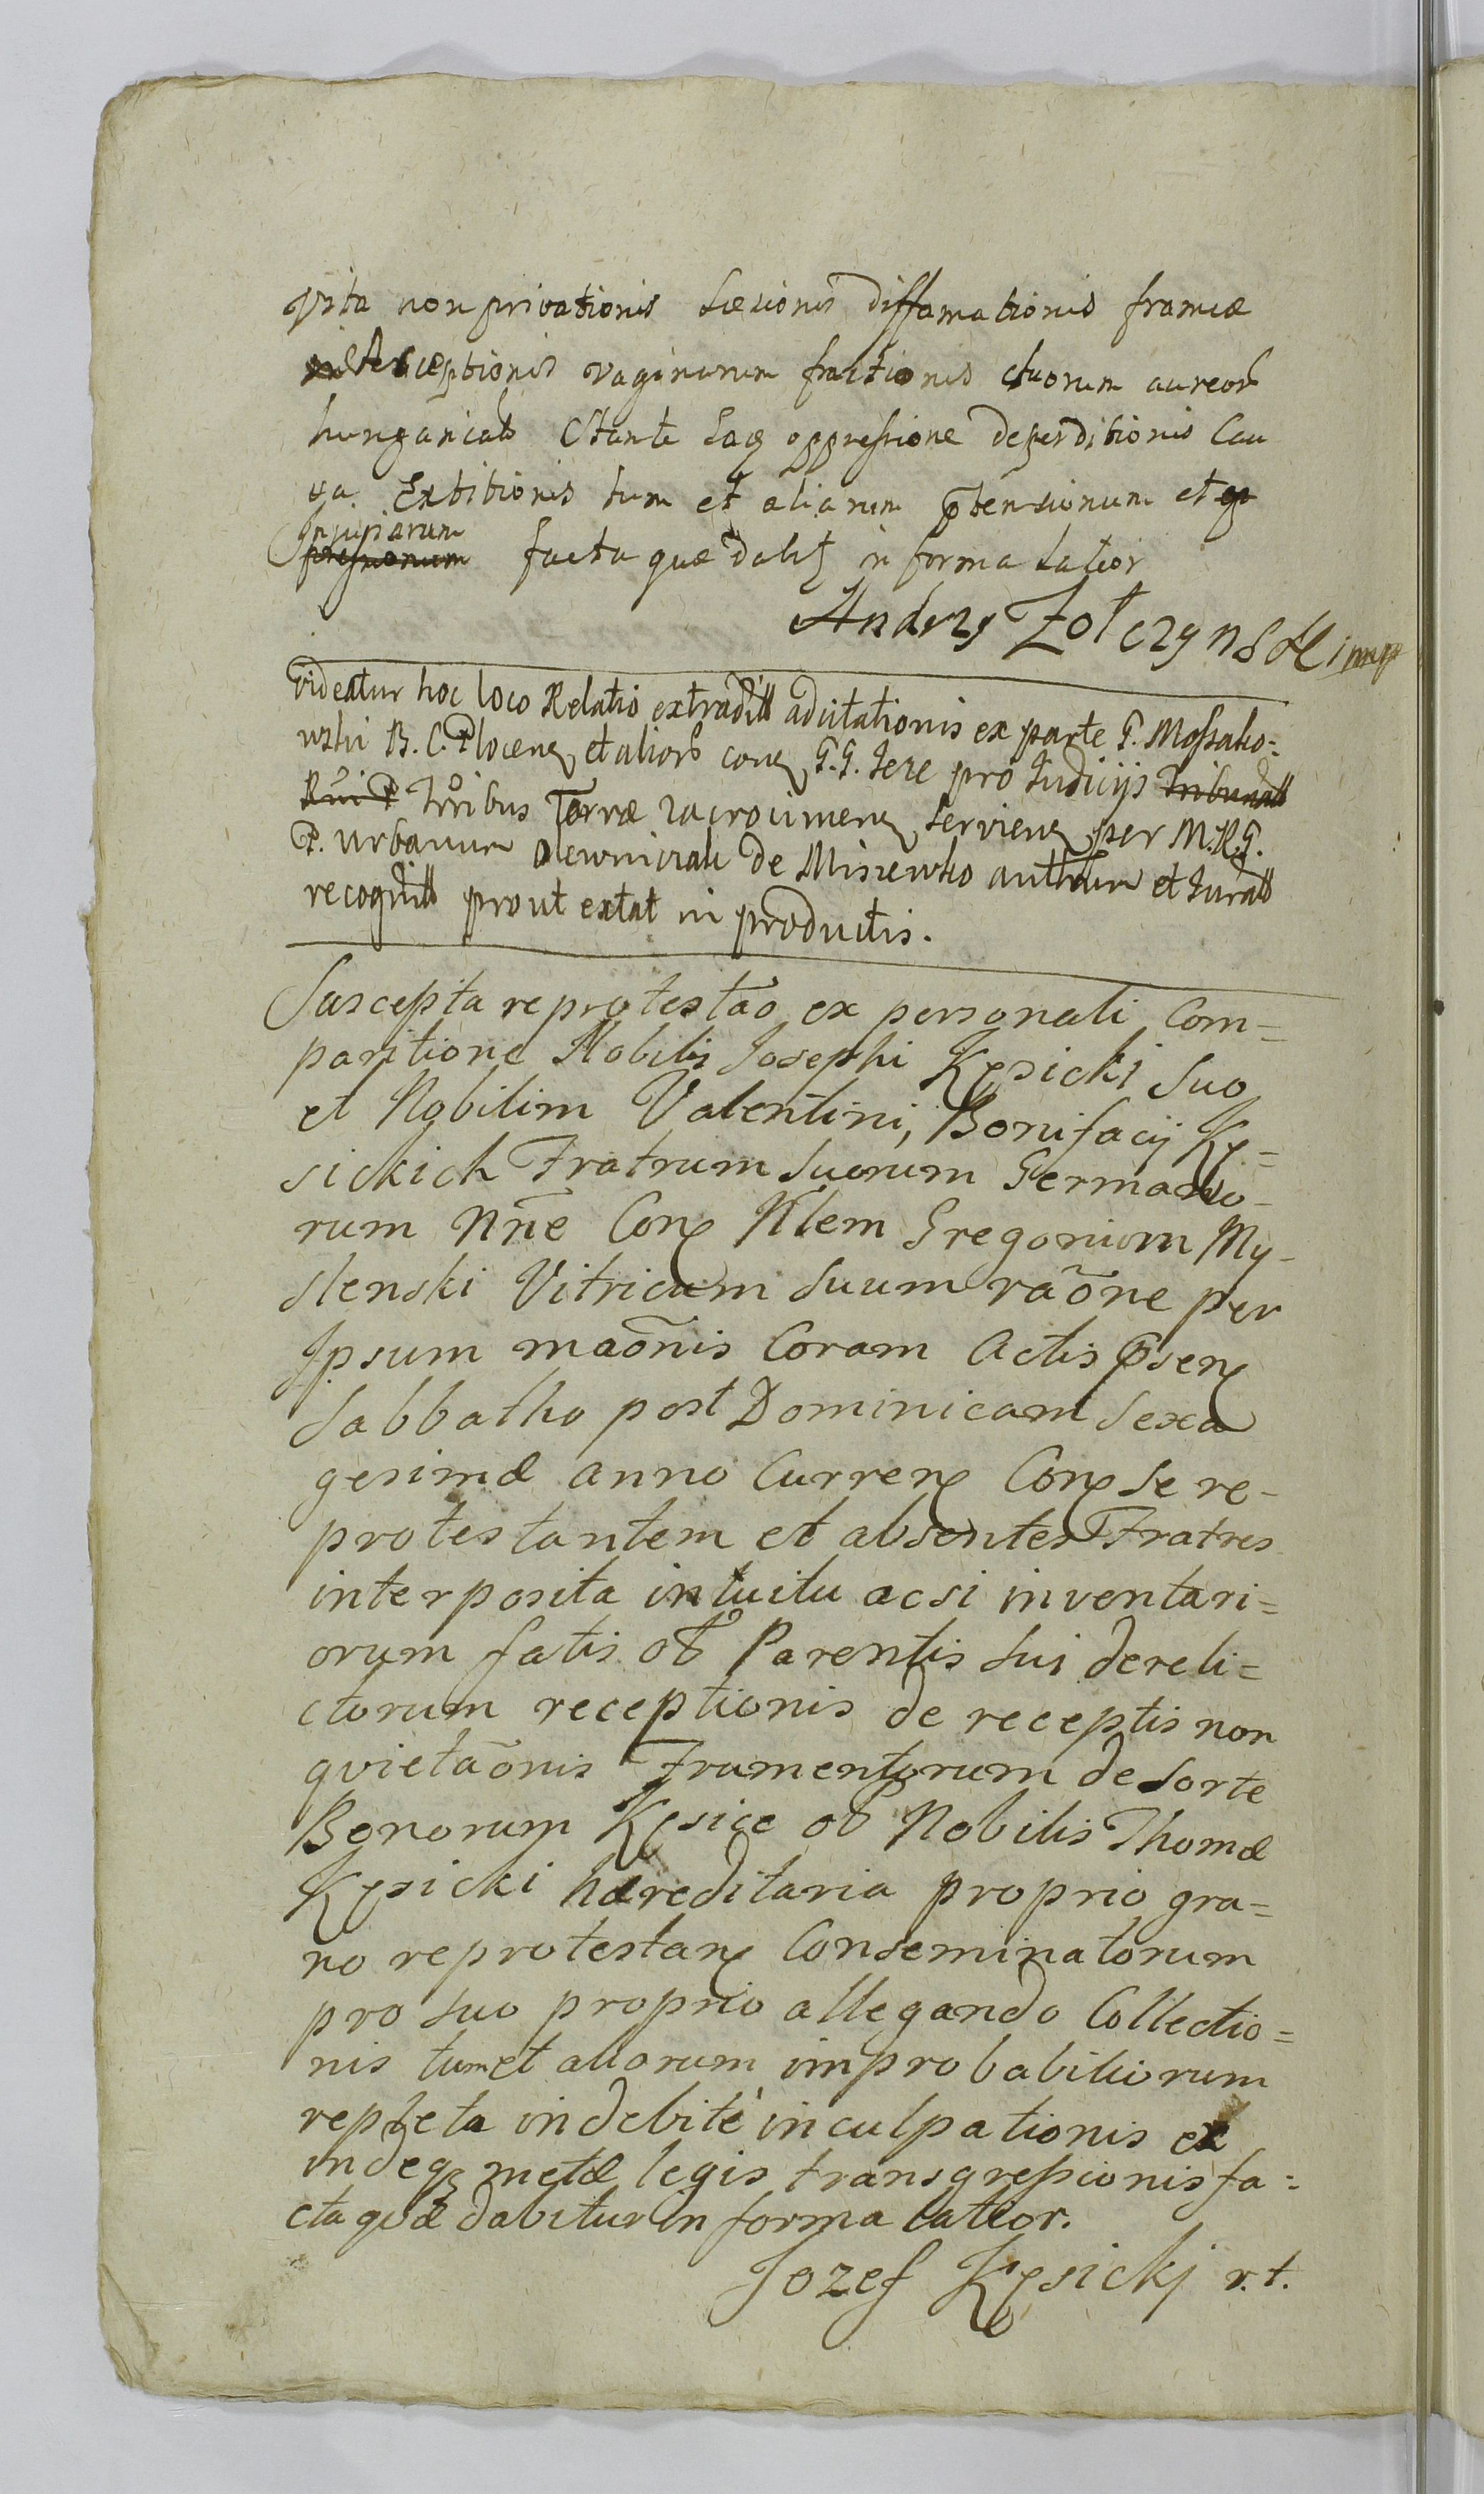 Vita non privationis Læsionis diffamationis frameæ
interceptionis vaginarum fractionis duorum aureor
hungarical Stante Eaq oppressione deperditionis Cau
sa Extitionis tum et aliarum ptensionum et
Injuriarum
facta quæ dabit in forma Latior
Andrzy Zołczynski mp
Videatur hoc loco Relatio extradit adcitationis ex parte G. Mossako=
wski B. C. Plocen et alior con G.G. Jeze pro Judicijs Tribunal
Tribus Terræ Zacrocimen Servien per M.R.G.
P. Urbanum de Miszewko authum et Jurat
recognit prout extat in productis.
Suscepta reprotestao ex personali Com=
paritione Nobilis Josephi Kęsicki Suo
et Nobilium Valentini, Bonifacij Kę=
sickich Fratrum Suorum Germano-
rum Nne Con Nlem Gregorium My-
slenski Vitricum Suum raone per
Ipsum maonis Coram Actis psen
Sabbatho post Dominicam Sexa
gesimæ anno Curren Con Se re-
protestantem et absentes Fratres
interposita intuitu acsi inventari=
orum fatis ol Parentis Sui dereli=
ctorum receptionis de receptis non
qvietaonis Frumentorum de Sorte
Bonorum Kęsice ol Nobilis Thomæ
Kęsicki hæreditaria proprio gra=
no reprotestan Conseminatorum
pro suo proprio allegando Collectio=
nis tum et aliorum improbabiliorum
repleta indebitè inculpationis et
indeq metæ legis transgressionis fa=
cta qvæ dabitur in forma latior.
Jozef Kęsickj r.t.